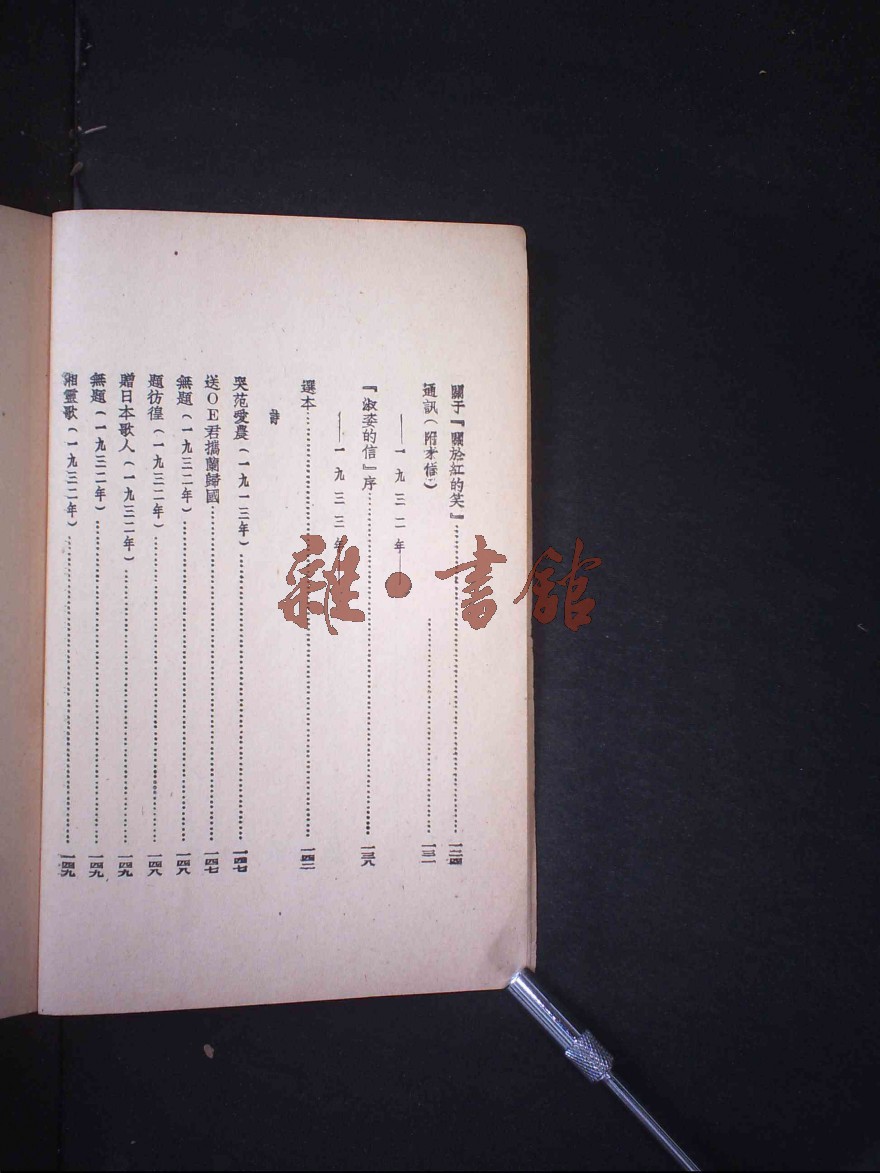 關于『關於紅的笑』……一二四
通訊(附來信)……一三一
——一九三二年——
『淑姿的信』序……一三八
——一九三三年——
選本……一四二
詩
哭范愛農(一九一三年)……一四七
送OE君攜蘭歸國……一四七
無題(一九三二年)……一四八
題彷徨(一九三二年)……一四八
贈日本歌人(一九三二年)……一四九
無題(一九三二年)……一四九
湘靈歌(一九三二年)……一四九
雜·書館